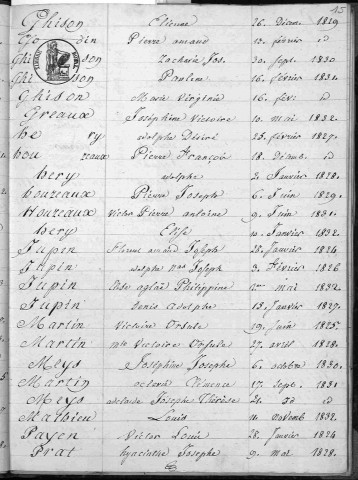 45
Ghison Etienne 26. Décem. 1829
Go din Pierre amand 12. février id
Ghi son Zacharie Jos. 20. Sept. 1830
Ghi son Paulene 16. février 1831
Ghison Marie Virginie 16. févr. id
Greaux Joséphine Victoire 10. mai 1832.
he ry adolphe Désiré 25. février 1827.
hou zeaux Pierre François 18. Décemb. id
hery adolphe 2. Janvier 1828.
houzeaux Pierre Joseph 6. Juin 1829.
Houzeaux Victor Pierre antoine 9. Juin 1831.
hery Elise 10. Janvier 1832.
Jupin amand Joseph 28. Janvier 1824.
Jupin adolphe Joseph 3. Février 1826
Jupin aglaé Philippine mai 1832.
Jupin Denis adolphe 15. Janvier 1827.
Martin Victoire Ursule 29. Juin 1825.
Martin Victoire Ursule 27. avril 1828.
Meys Joséphine Josephe 6. octobre 1830.
Martin octavie Clémence 17. sept. 1831
Meys adelaïde Josephe Thérèse 21. id id
Mathieu Louis 11. Novemb. 1832.
Payen Victor Louis 28. Janvier 1824
Prat hyacinthe Josephe 9. mai 1828.